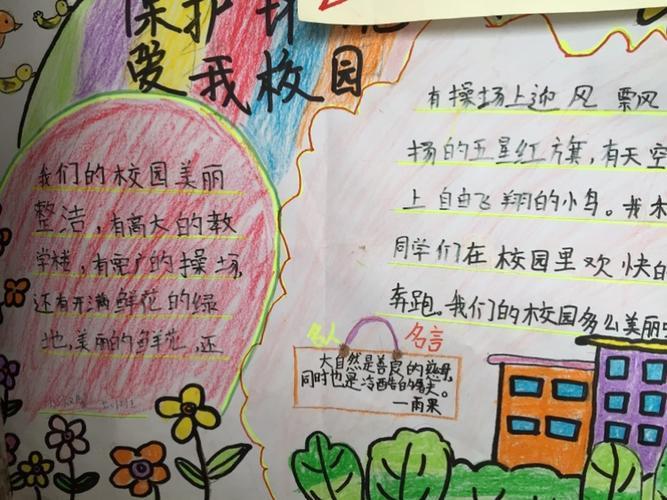 保护环
爱我校园
我们的校园美丽
整洁，有高大的教
学楼，有宽广的操场，
还有开满鲜花的绿
地，美丽的鲜花，还
有操场上迎风票风
扬的五星红方旗，有天空
上自由飞翔的小鸟。我
同学们在校园里欢快的
奔跑。我们的校园多么美丽
名人 名言
大自然是善良的慈母，
同时也是冷酷的屠夫。
—雨果